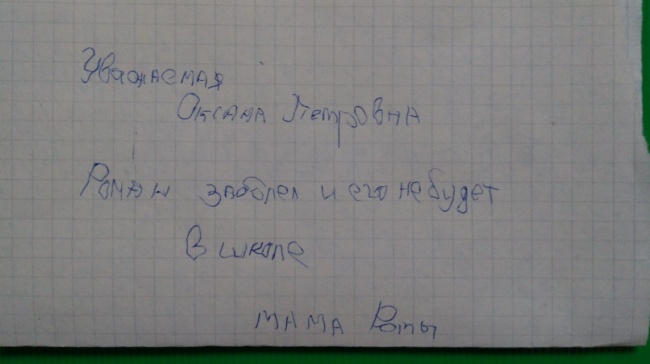 Уважаемая
Оксана Петровна
Роман заболел и его не будет
в школе
мама Ромы